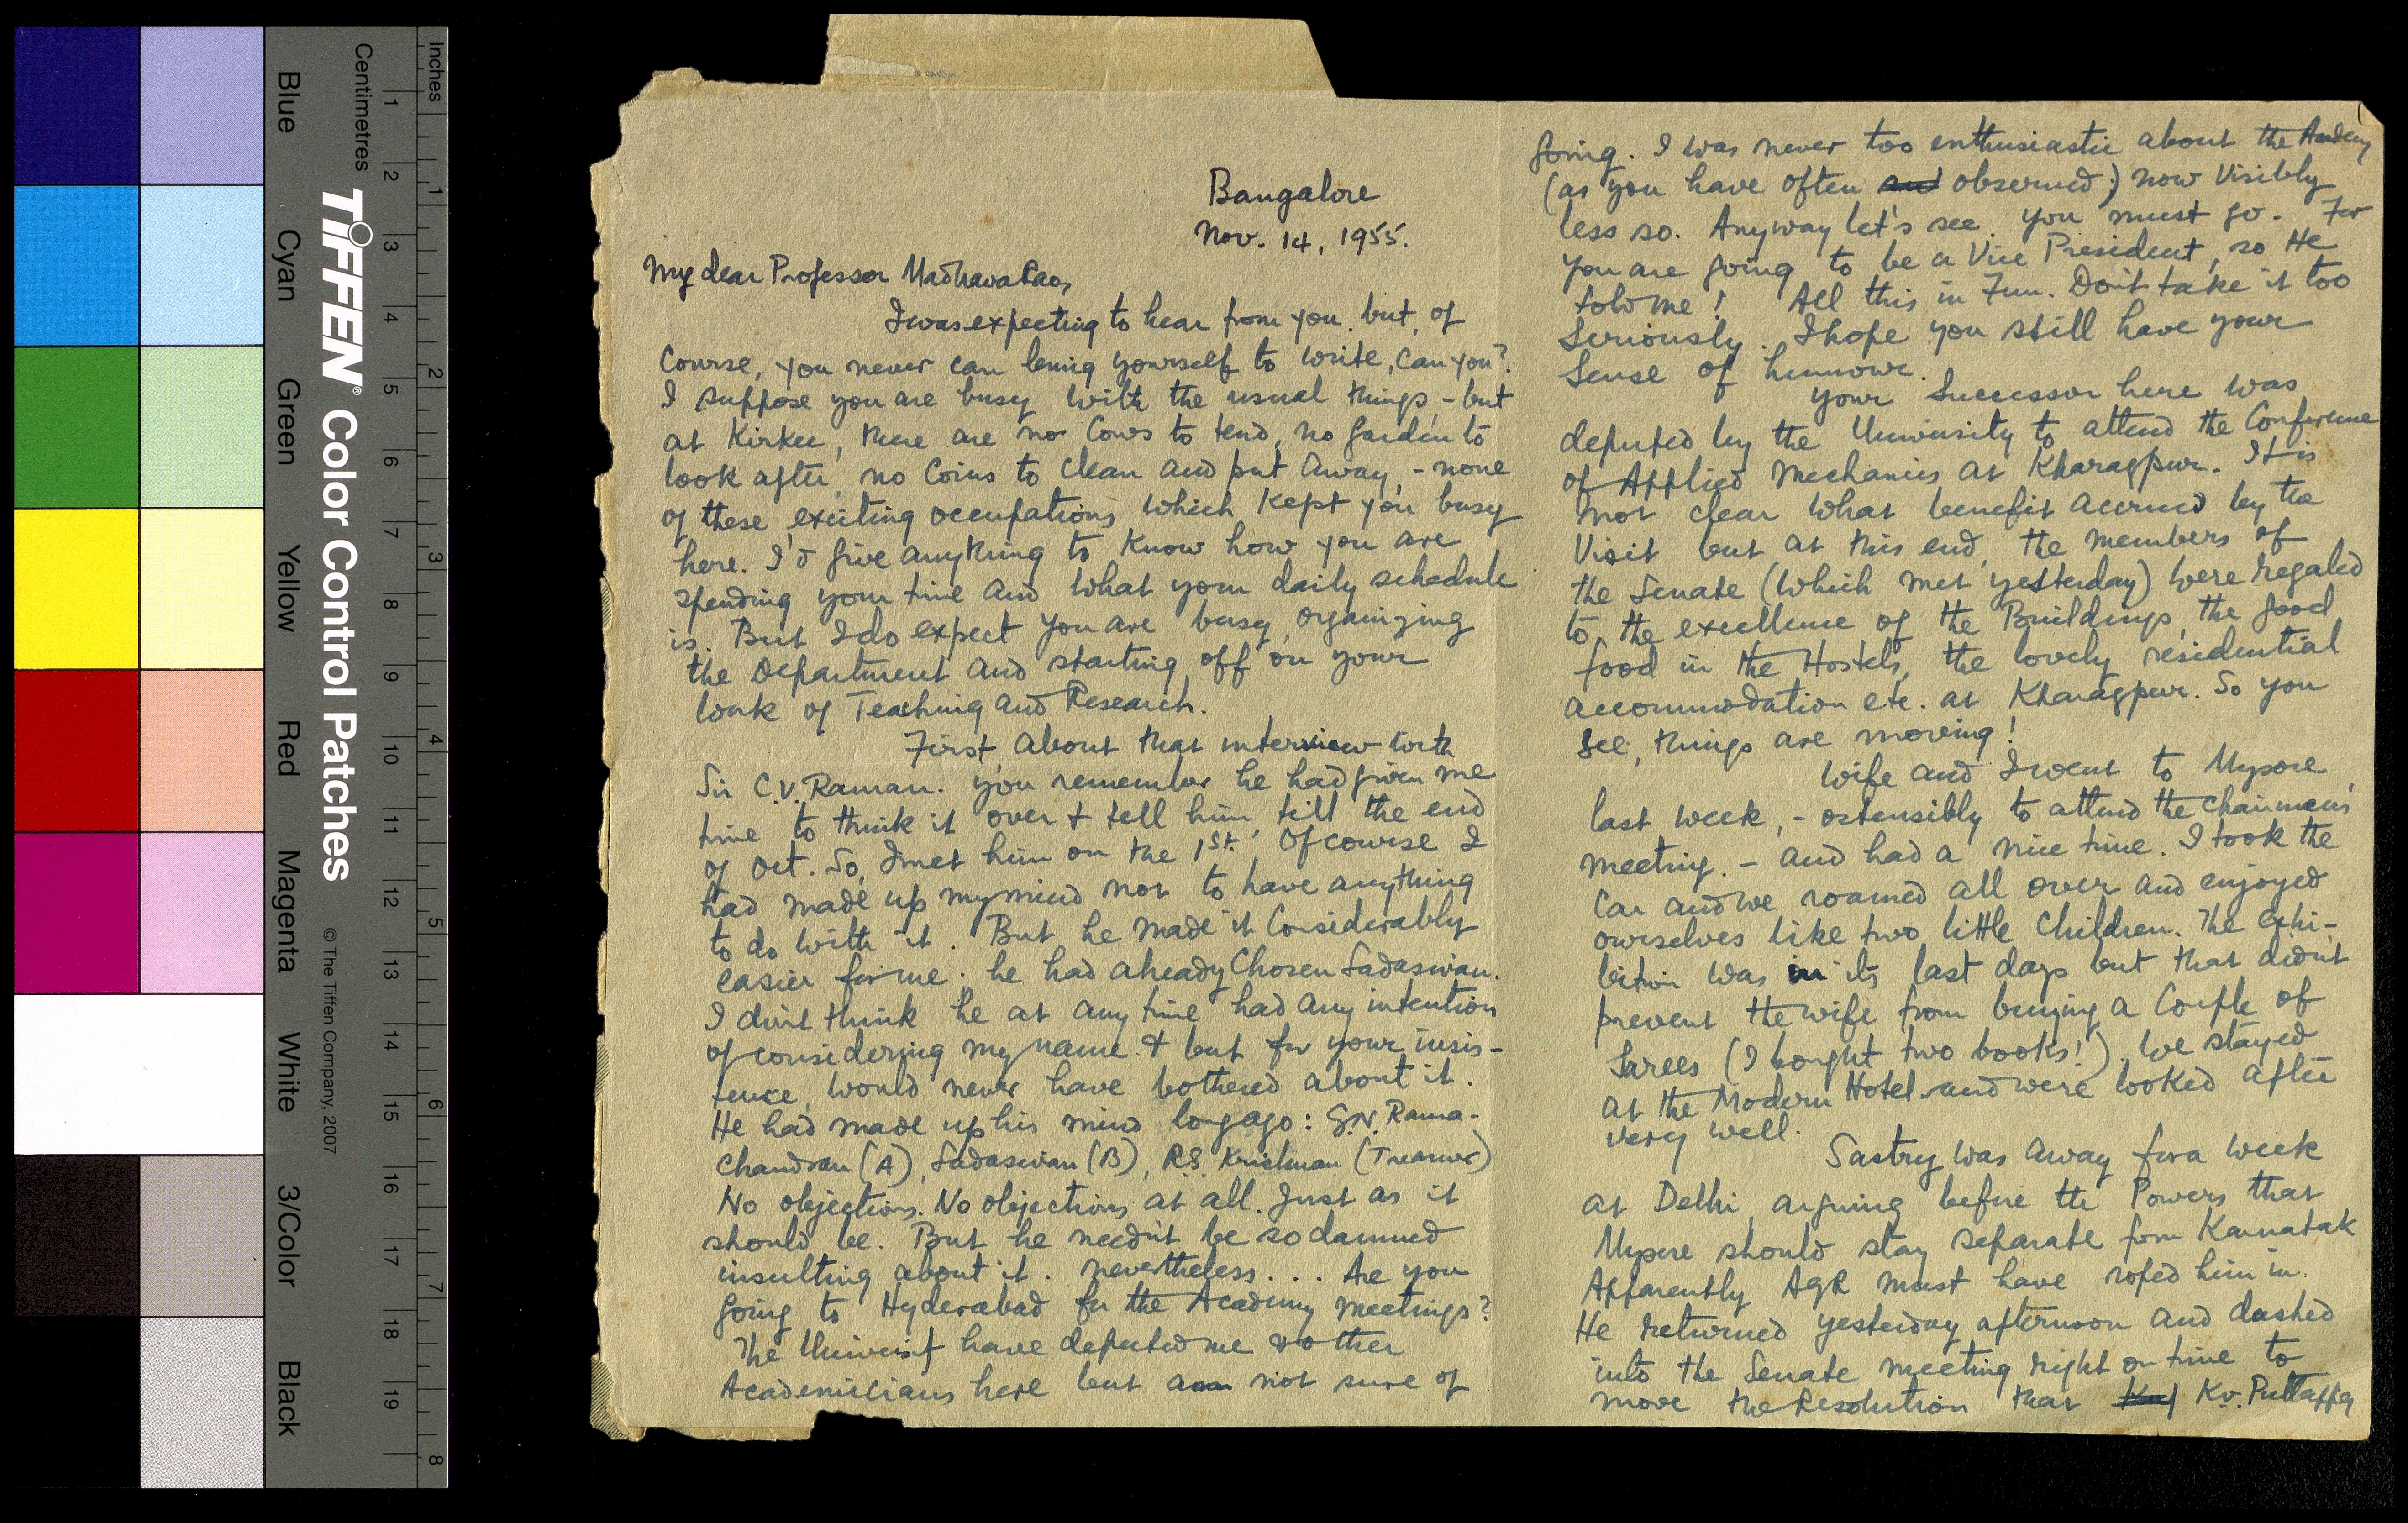 Inches
Centimetres
1 2 3 4 5 6 7 8 9 10 11 12 13 14 15 16 17 18 19
1 2 3 4 5 6 7 8
TIFFEN® Color Control Patches © The Tiffen Company, 2007
Blue Cyan Green Yellow Red Magenta White 3/Color Black
Bangalore
Nov. 14, 1955.
My dear Professor Madhava Rao,
I was expecting to hear from you. but, of
Course, you never can bring yourself to write, can you?
I suppose you are busy with the usual things, - but
at Kirkee, there are no Cows to tend, no garden to
look after, no Coins to Clean and put away, - none
of these exciting occupations which kept you busy
here. I'd give anything to know how you are
spending your time and what your daily schedule
is. But I do expect you are busy, organizing
the Department and starting off on your
work of Teaching and Research.
First, about that interview with
Sir C.V. Raman. You remember he had given me
time to think it over & tell him, till the end
of Oct. So, I met him on the 1st. Of course I
had made up my mind not to have anything
to do with it. But he made it Considerably
easier for me; he had already Chosen Sadasivan.
I don't think he at any time had any intention
of considering my name & but for your insis-
tence, would never have bothered about it.
He had made up his mind long ago: G.N. Rama-
chandran (A), Sadasivan (B), R.S. Krishnan (Treasurer)
No objections. No objections at all. Just as it
should be. But he needn't be so damned
insulting about it. nevertheless... Are you
going to Hyderabad for the Academy meetings?
The University have deputed me & other
Academicians here but am not sure of
going. I was never too enthusiastic about the Academy
(as you have often observed;) now Visibly
less so. Anyway let's see. You must go. For
you are going to be a Vice President, so He
told me! All this in Fun. Don't take it too
Seriously. I hope you still have your
Sense of humour.
Your Successor here was
deputed by the University to attend the Conference
of Applied Mechanics at Kharagpur. It is
not clear what benefit accrued by the
Visit but at this end, the members of
the Senate (which met yesterday) were regaled
to the excellence of the Buildings, the good
food in the Hostels, the lovely residential
accommodation etc. at Kharagpur. So you
see, things are moving!
Wife and I went to Mysore
last week, - ostensibly to attend the Chairmen's
meeting. - and had a nice time. I took the
Car and we roamed all over and enjoyed
ourselves like two little Children. The exhi-
bition was in its last days but that didn't
prevent the wife from buying a Couple of
Sarees (I bought two books!). We stayed
at the Modern Hotel and were looked after
very well.
Sastry was away for a week
at Delhi, arguing before the Powers that
Mysore should stay separate from Karnatak
Apparently AGR must have roped him in.
He returned yesterday afternoon and dashed
into the Senate meeting right on time to
move the Resolution that K.V. Puttappa